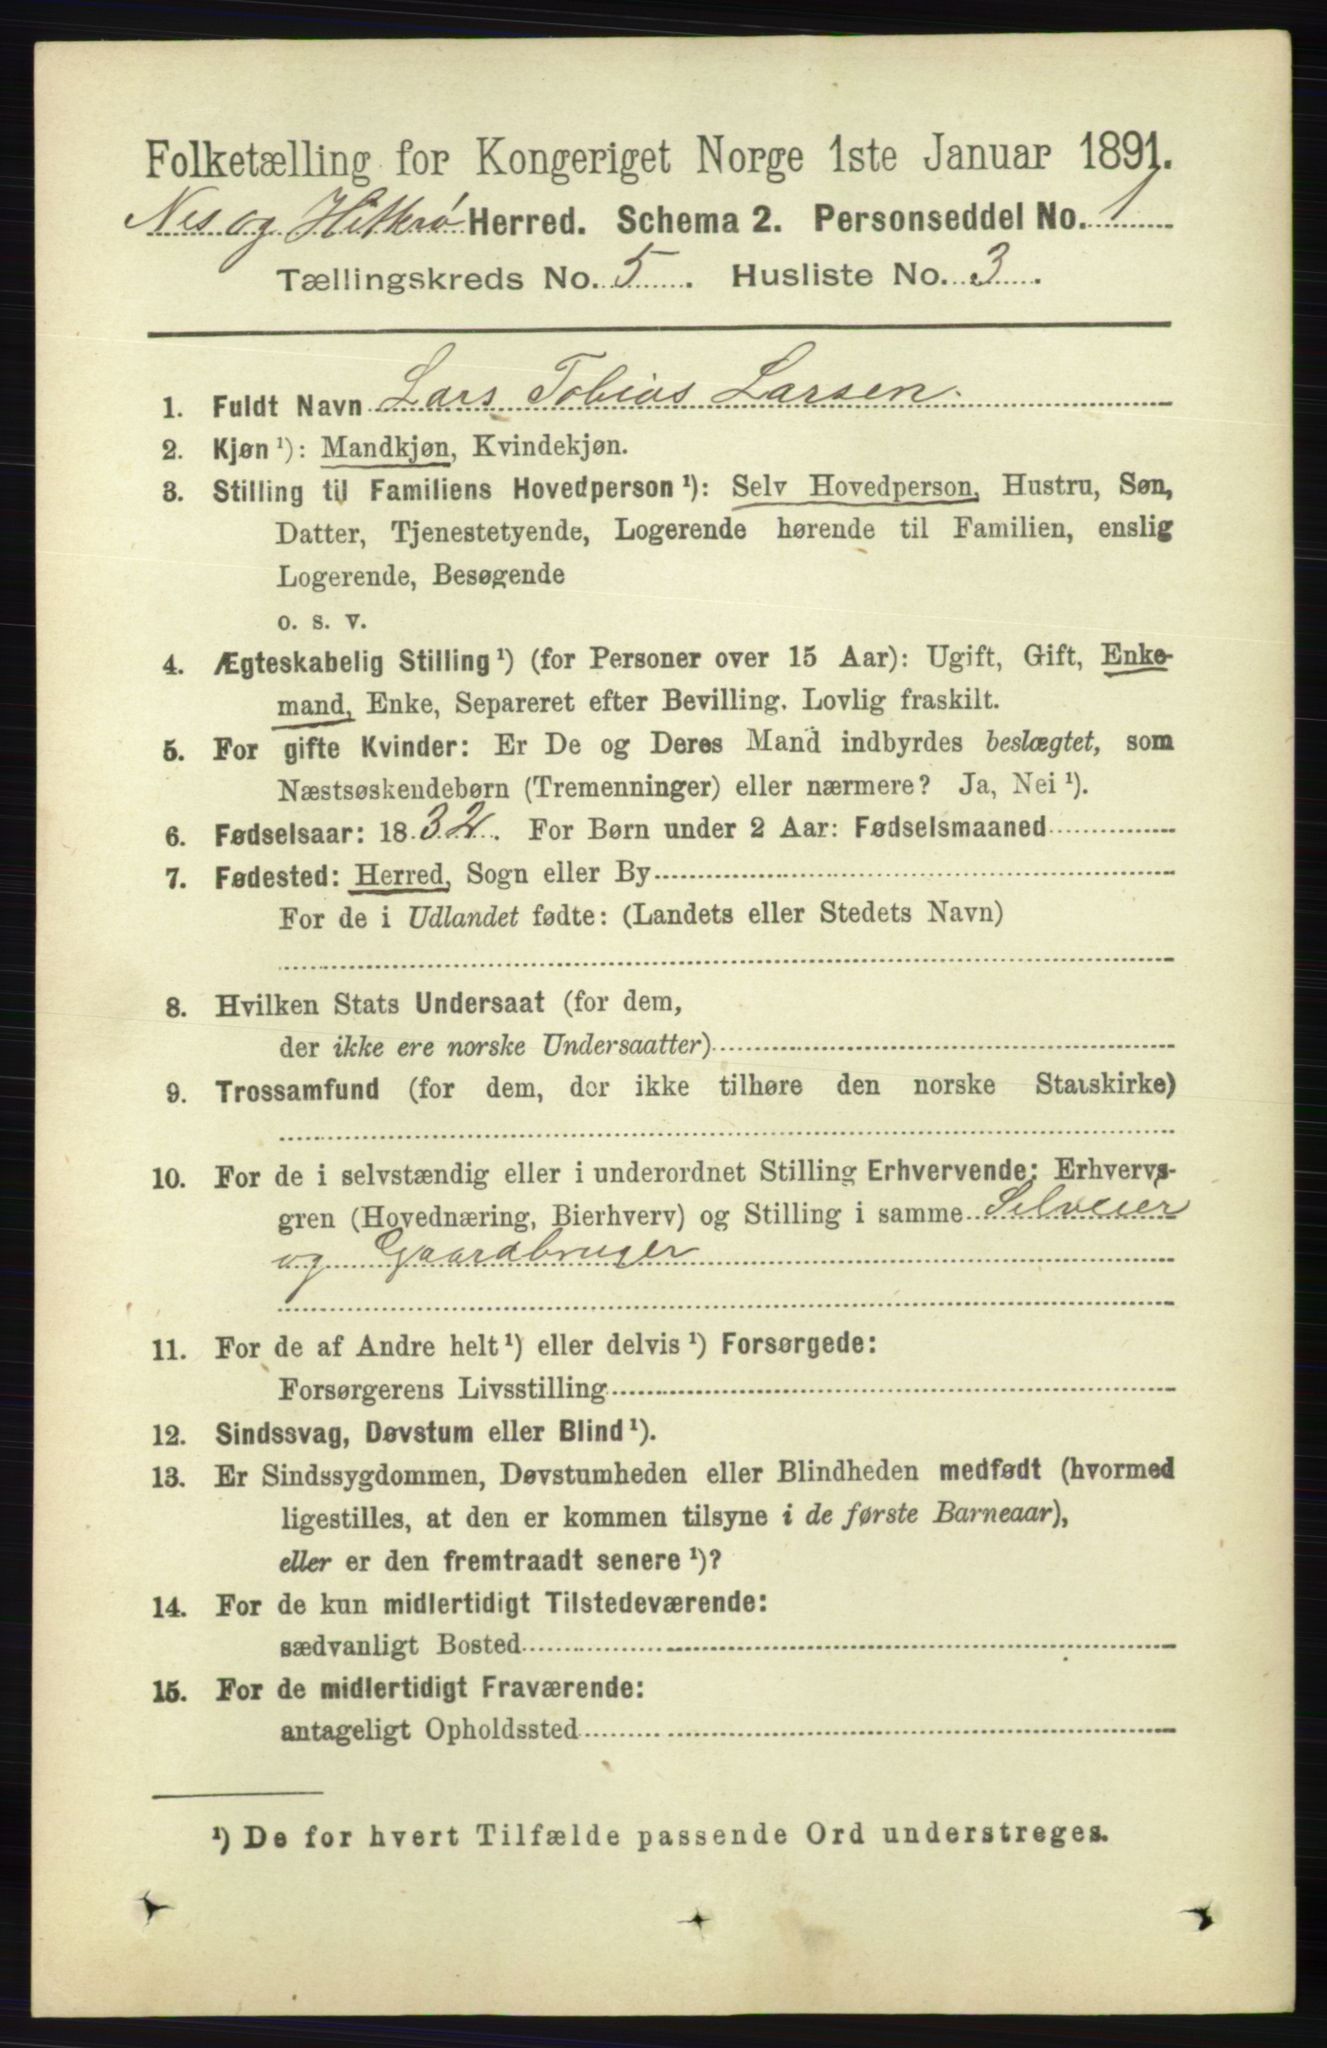 Folketælling for Kongeriget Norge 1ste Januar 1891.
Nes og Hitterø Herred. Schema 2. Personseddel No. 1
Tællingskreds No. 5. Husliste No. 3.
1. Fuldt Navn Lars Tobias Larsen.
2. Kjøn ¹): Mandkjøn, Kvindekjøn.
3. Stilling til Familiens Hovedperson ¹): Selv Hovedperson, Hustru, Søn,
Datter, Tjenestetyende, Logerende hørende til Familien, enslig
Logerende, Besøgende
o. s. v.
4. Ægteskabelig Stilling ¹) (for Personer over 15 Aar): Ugift, Gift, Enke-
mand, Enke, Separeret efter Bevilling. Lovlig fraskilt.
5. For gifte Kvinder: Er De og Deres Mand indbyrdes beslægtet, som
Næstsøskendebørn (Tremenninger) eller nærmere? Ja, Nei ¹).
6. Fødselsaar: 1832. For Børn under 2 Aar: Fødselsmaaned
7. Fødested: Herred, Sogn eller By
For de i Udlandet fødte: (Landets eller Stedets Navn)
8. Hvilken Stats Undersaat (for dem,
der ikke ere norske Undersaatter)
9. Trossamfund (for dem, der ikke tilhøre den norske Statskirke)
10. For de i selvstændig eller i underordnet Stilling Erhvervende: Erhvervs-
gren (Hovednæring, Bierhverv) og Stilling i samme Selveier
og Gaardbruger
11. For de af Andre helt ¹) eller delvis ¹) Forsørgede:
Forsørgerens Livsstilling
12. Sindssvag, Døvstum eller Blind ¹).
13. Er Sindssygdommen, Døvstumheden eller Blindheden medfødt (hvormed
ligestilles, at den er kommen tilsyne i de første Barneaar),
eller er den fremtraadt senere ¹)?
14. For de kun midlertidigt Tilstedeværende:
sædvanligt Bosted
15. For de midlertidigt Fraværende:
antageligt Opholdssted
¹) De for hvert Tilfælde passende Ord understreges.